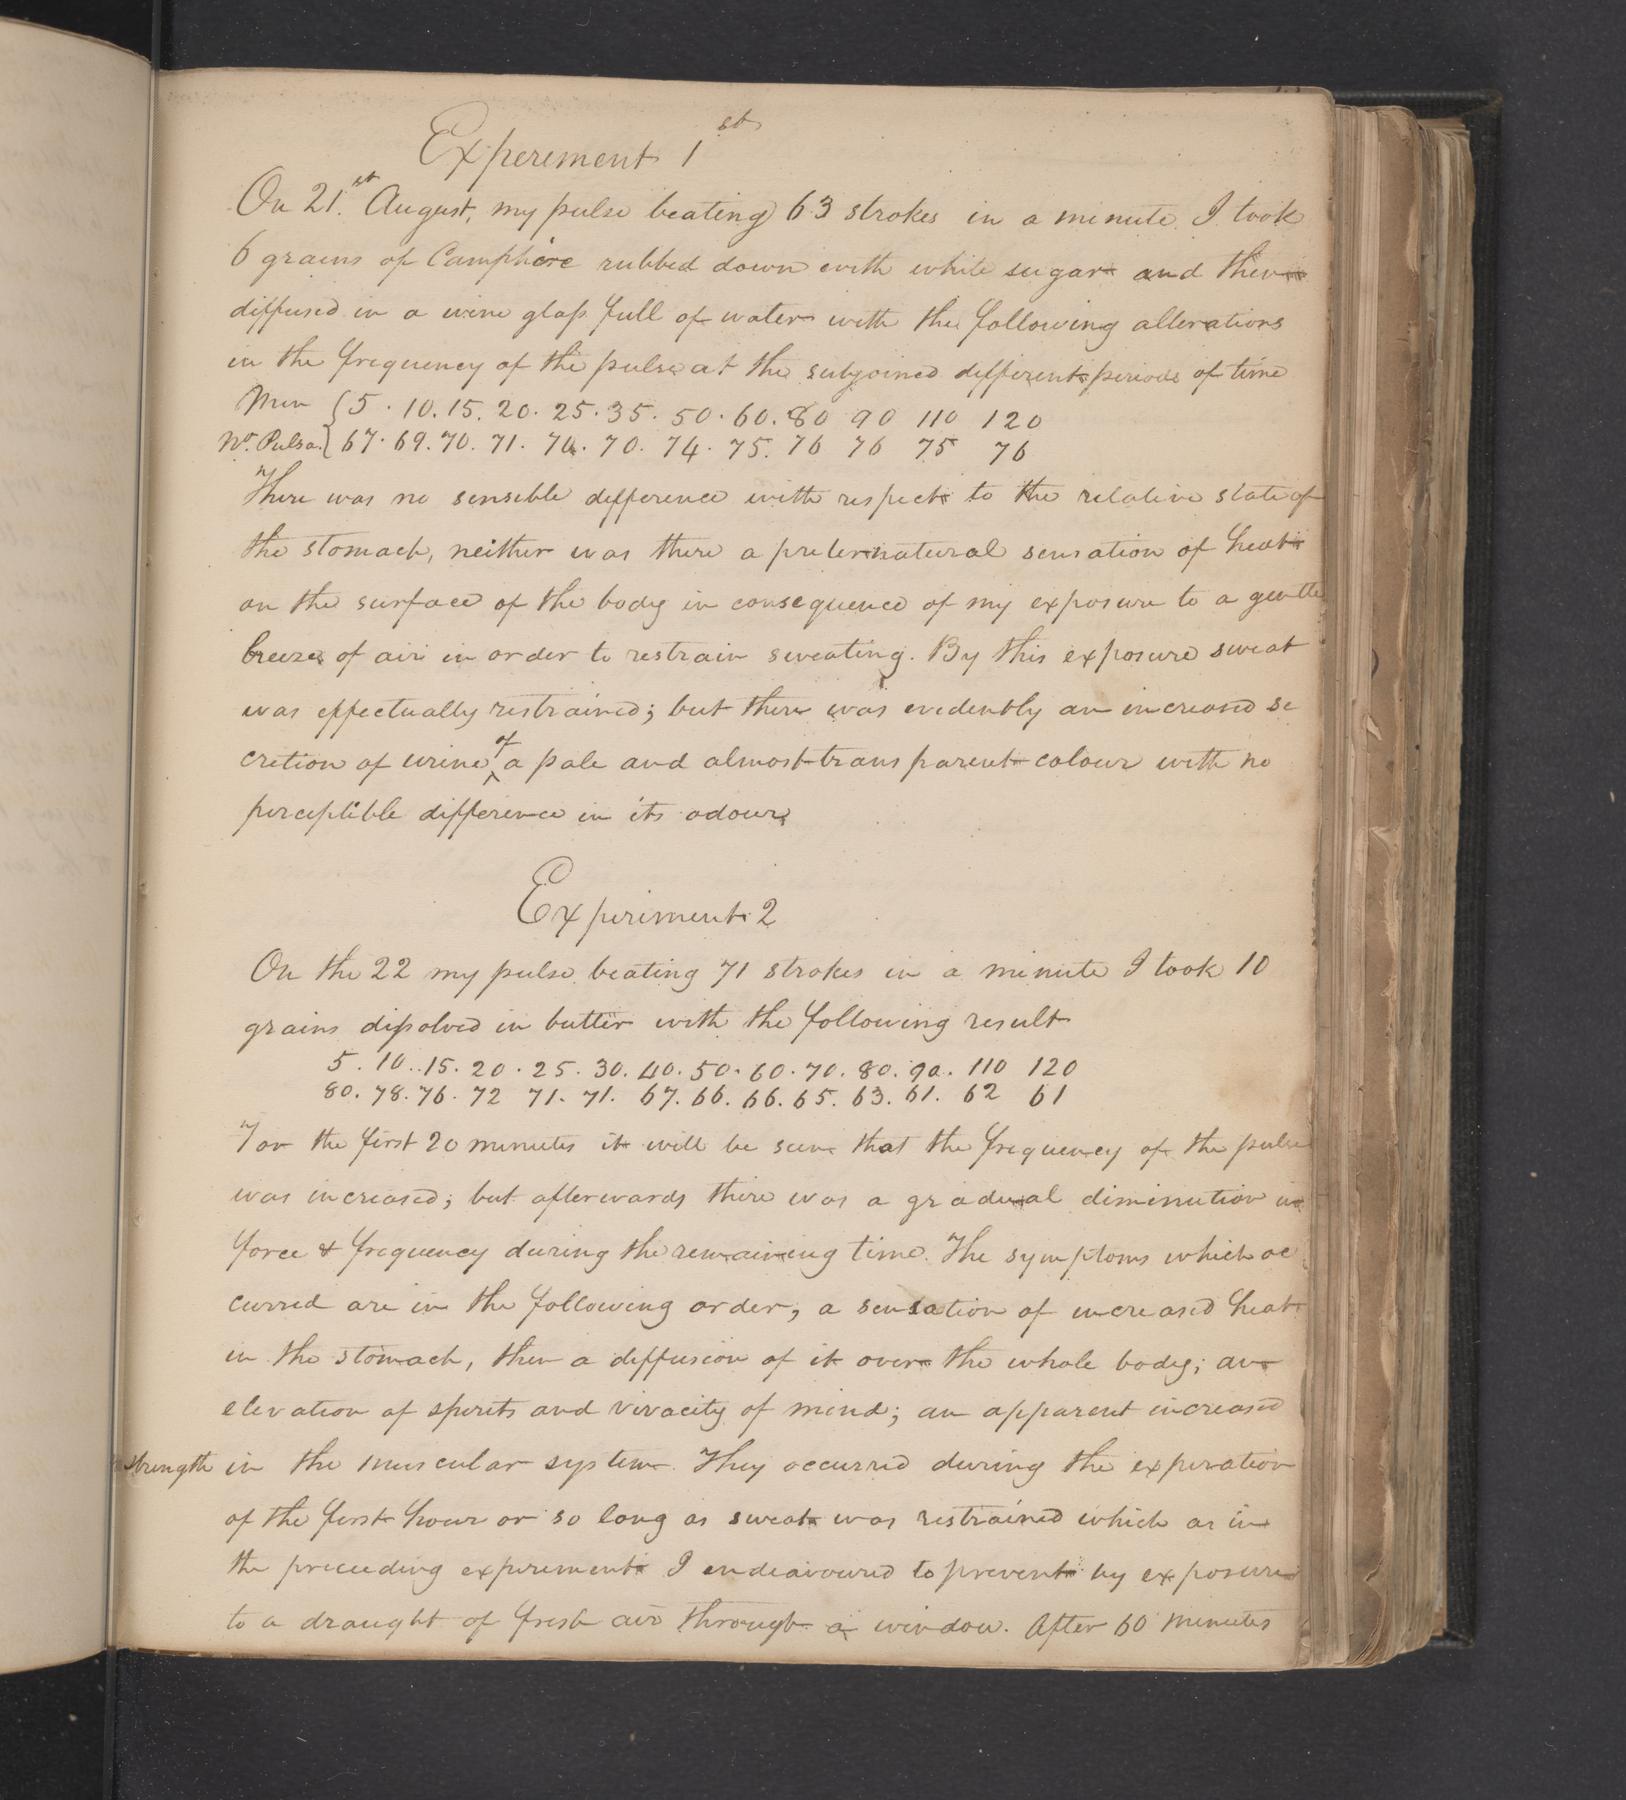 Experiment 1st
On 21.st August, my pulse beating 63 strokes in a minute I took
6 grains of Camphire rubbed down with white sugar and then
diffused in a wine glass full of water with the following alterations
in the frequency of the pulse at the subjoined different periods of time
Min { 5 . 10 . 15 . 20 . 25 . 35 . 50 . 60 . 80 90 110 120
No. Pulsa. } 67 . 69 . 70 . 71 . 70 . 74 . 75 . 76 76 75 76
There was no sensible difference with respect to the relative state of
the stomach, neither was there a preternatural sensation of heat
on the surface of the body in consequence of my exposure to a gentle
breeze of air in order to restrain sweating. By this exposure sweat
was effectually restrained; but there was evidently an increased se
cretion of urine of a pale and almost transparent colour with no
perceptible difference in its odour
Experiment 2
On the 22 my pulse beating 71 strokes in a minute I took 10
grains dissolved in butter with the following result
5 . 10 . . 15 . 20 . 25 . 30 . 40 . 50 . 60 . 70 . 80 . 90 . 110 120
80 . 78 . 76 . 72 71 . 71 . 67 . 66 . 66 . 65 . 63 . 61 . 62 61
For the first 20 minutes it will be seen that the frequency of the pulse
was increased; but afterwards there was a gradual diminution in
force & frequency during the remaining time. The symptoms which oc
curred are in the following order, a sensation of increased heat
in the stomach, then a diffusion of it over the whole body; an
elevation of spirits and vivacity of mind; an apparent increased
strength in the muscular system. They occurred during the expiration
of the first hour or so long as sweat was restrained which as in
the preceeding experiment I endeavoured to prevent by exposure
to a draught of fresh air through a window. After 60 minutes